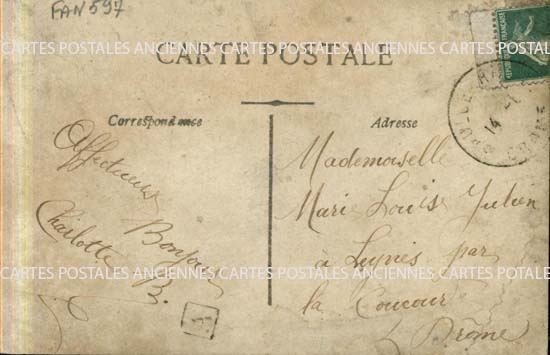 FAN597
CARTES POSTALES ANCIENNES CARTES POSTALES ANCIENNES CARTES POSTALES
CARTE POSTALE
Correspondance
Adresse
Affectueux
Bonjour
Charlotte B.
Mademoiselle
Marie Louise Julien
à Luynès par
la Coucour
Drôme
14
DROME
REPUBLIQUE FRANÇAISE
CARTES POSTALES ANCIENNES CARTES POSTALES ANCIENNES CARTES POTALE